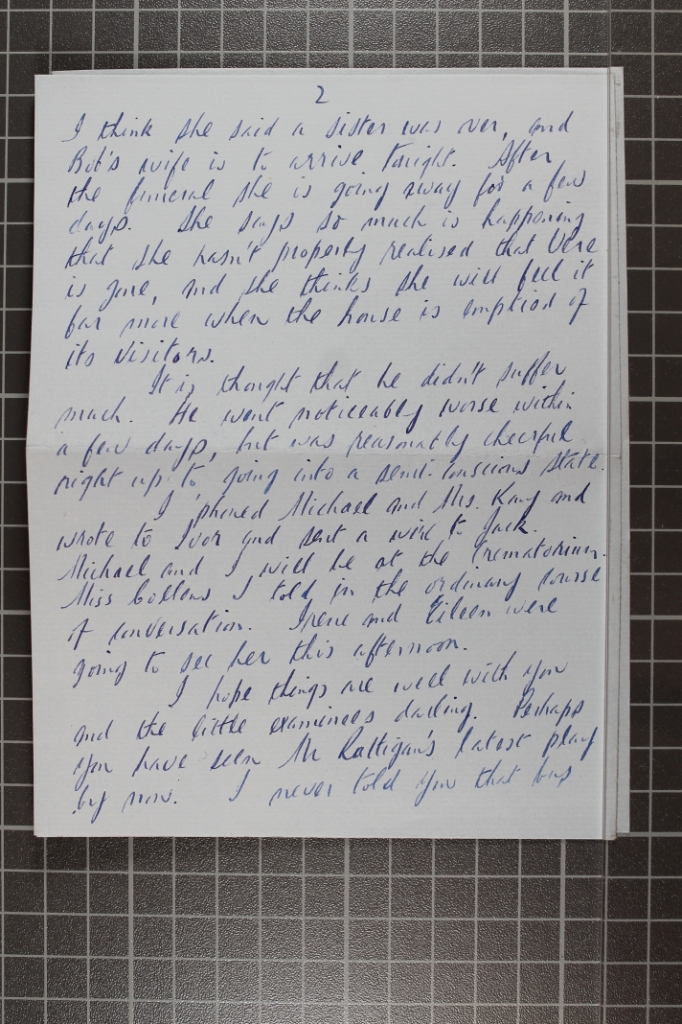 2
I think she said a sister was over, and
Bob's wife is to arrive tonight. After
the funeral she is going away for a few
days. She says so much is happening
that she hasn't properly realised that Vere
is gone, and she thinks she will feel it
far more when the house is emptied of
its visitors.
It is thought that he didn't suffer
much. He went noticeably worse within
a few days, but was reasonably cheerful
right up to going into a semi-conscious state.
I 'phoned Michael and Mrs. Kay and
wrote to Ivor and sent a wire to Jack.
Michael and I will be at the Crematorium.
Miss Collens I told in the ordinary course
of conversation. Irene and Eileen were
going to see her this afternoon.
I hope things are well with you
and the little examinees darling. Perhaps
you have seen Mr Rattigan's latest play
by now. I never told you that bus